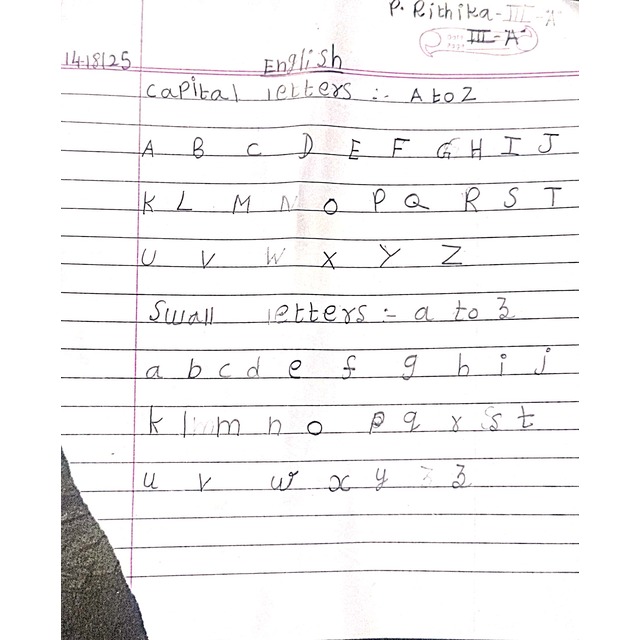 P. Rithika - III - A
III - A
14-18/25
English
Capital letters :- A to Z
A B C D E F G H I J
K L M N O P Q R S T
U V W X Y Z
Swall letters :- a to z
a b c d e f g h i j
k l m n o p q r s t
u v w x y z